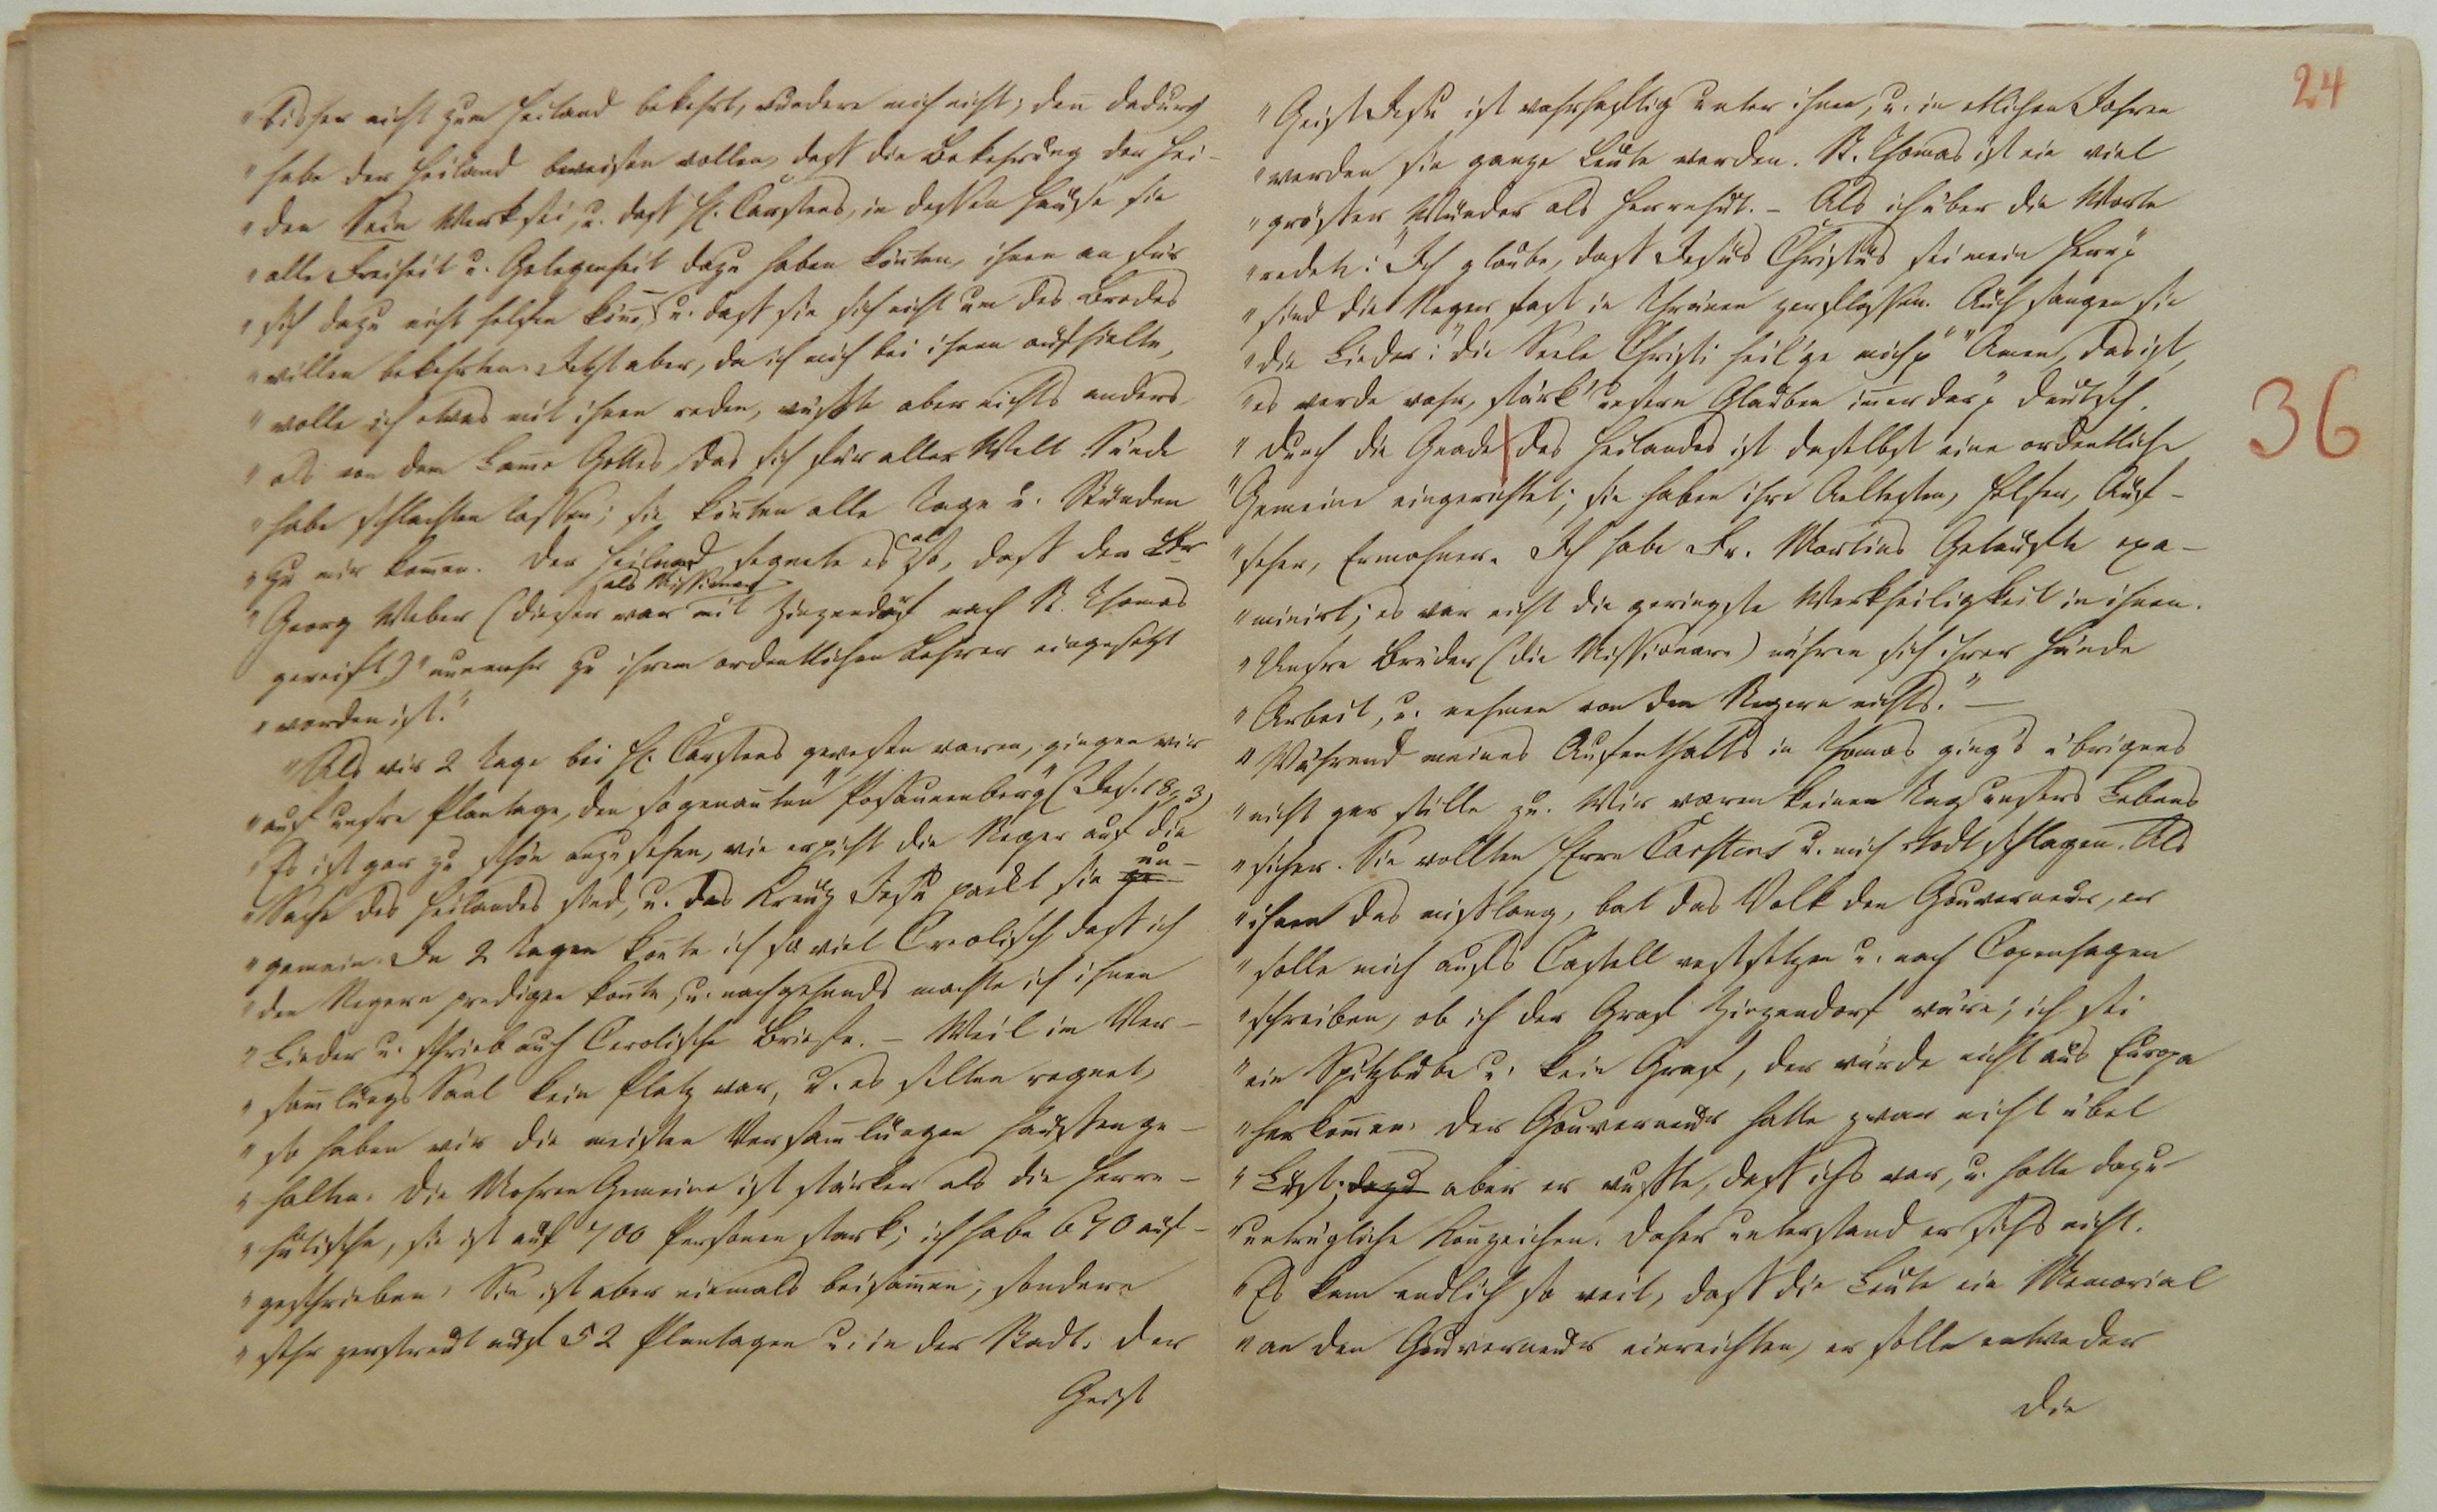 "bisher nicht zum Heiland bekehrt, wundere mich nicht; deñ dadurch
"habe der Heiland beweisen wollen, daß die Bekehrung der Hei-
"den Sein Werk sei, u. daß H. Carstens, in dessen Hause sie
"alle Freiheit u. Gelegenheit dazu haben köñten, ihnen an für
"sich dazu nicht helfen köñe, u. daß sie sich nicht um des Brodes
"willen bekehrten. Jetzt aber, da ich mich bei ihnen aufhielte,
"wolle ich etwas mit ihnen reden, wüßte aber nichts anders
"als von dem Lam̃e Gottes, das sich für aller Welt Sünde
"habe schlachten lassen; sie köñten alle Tage u. Stunden
"zu mir kom̃en. Der Heiland segnete es so, daß der Br.
als Missionar
"Georg Weber (dieser war mit Zinzendorf nach St. Thomas
gereist) "nunmehr zu ihrem ordentlichen Lehrer eingesetzt
"worden ist."
"Als wir 2 Tage bei H. Carstens gewesen waren, gingen wir
"auf unsre Plantage, den sogenañten "Posaunenberg" (Jes. 18, 3)
"Es ist gar zu schön anzusehen, wie erpicht die Neger auf die
"Sache des Heilandes sind, u. das Kreuz Jesu packt sie ge un-
"gemein. In 2 Tagen koñte ich so viel Creolisch daß ich
"den Negern predigen koñte, u. nachgehends machte ich ihnen
"Lieder u. schrieb auch Creolische Briefe. – Weil im Ver-
"sam̃lungs Saal kein Platz war, u. es selten regnet,
"so haben wir die meisten Versam̃lungen haußen ge-
"halten. Die Mohren Gemeine ist stärker als die Herrn-
"hutische, sie ist auf 700 Personen stark; ich habe 670 auf-
"geschrieben. Sie ist aber niemals beisam̃en, sondern
"sehr zerstreut auf 52 Plantagen u. in der Stadt. Der
Geist
24
"Geist Jesu ist wahrhaftig unter ihnen, u. in etlichen Jahren
"werden sie ganze Leute werden. St. Thomas ist ein viel
"größer Wunder als Herrnhut. – Als ich über die Worte
"redete: "Ich glaube, daß Jesus Christus sei mein Herr"
"sind die Neger fast in Thränen zerflossen. Auch sangen sie
"die Lieder: "Die Seele Christi heil'ge mich" "Amen, das ist,
"es werde wahr, stärk' unsern Glauben im̃erdar" deutsch.
36
"Durch die Gnade des Heilandes ist daselbst eine ordentliche
"Gemeine eingerichtet; sie haben ihre Aeltesten, Helfer, Auf-
"seher, Ermahner. Ich habe Fr. Martins Getaufte exa-
"minirt; es war nicht die geringste Werkheiligkeit in ihnen.
"Unsre Brüder (die Missionare) nähren sich ihrer Hände
"Arbeit, u. nehmen von den Negern nichts." –
"Während meines Aufenthalts in Thomas ging's übrigens
"nicht gar stille zu. Wir waren keinen Tag unsers Lebens
"sicher. Sie wollten Herrn Carstens u. mich todt schlagen. Als
"ihnen das mißlang, bat das Volk den Gouverneur, er
"solle mich aufs Castell vestsetzen u. nach Copenhagen
"schreiben, ob ich der Graf Zinzendorf wäre; ich sei
"ein Spitzbube u. kein Graf, der würde nicht aus Europa
"herkom̃en. Der Gouverneur hatte zwar nicht übel
"Lust, dazu aber er wußte, daß ichs war, u. hatte dazu
"untrügliche Keñzeichen. Daher unterstand er sichs nicht.
"Es kam endlich so weit, daß die Leute ein Memorial
"an den Gouverneur einreichten, er solle entweder
die